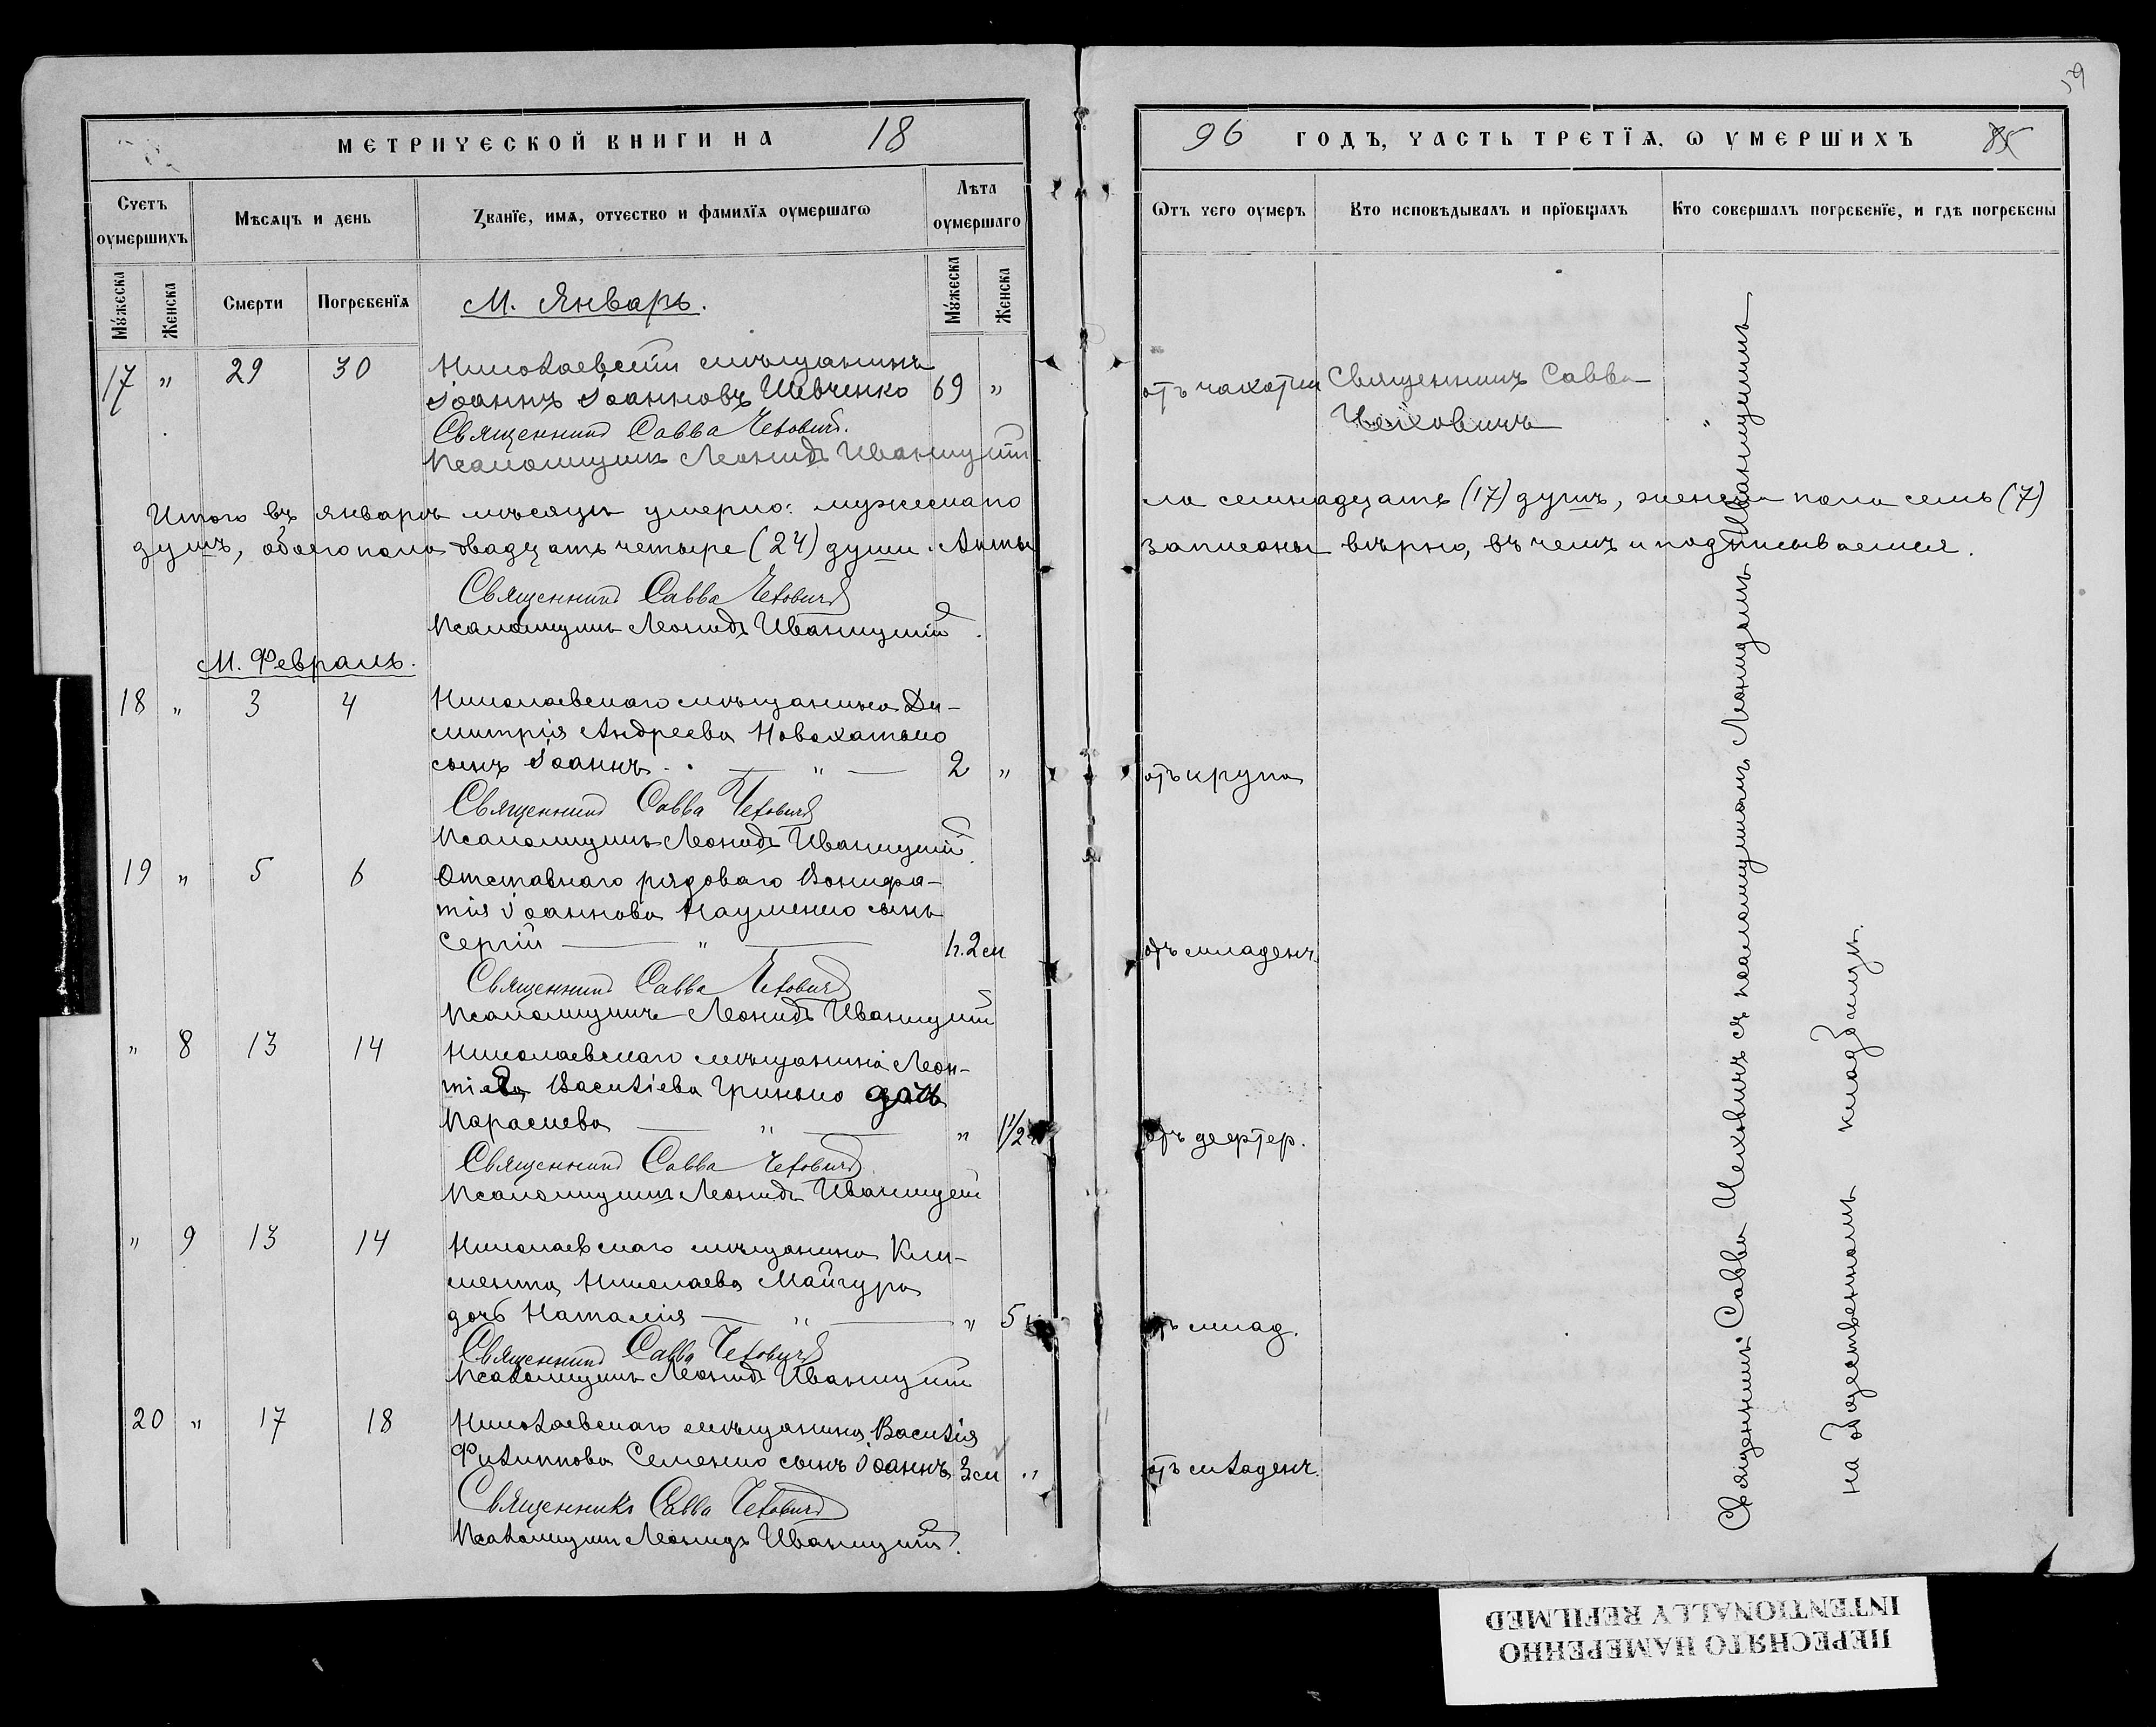 59
МЕТРИЧЕСКОЙ КНИГИ НА 18
96 ГОДЪ, ЧАСТЬ ТРЕТІѦ. Ѡ УМЕРШИХЪ 85
Счетъ оумершихъ
Мѣсѧцъ и день
Званїе, имѧ, отчество и фамилїѧ оумершагѡ
Лѣта оумершаго
Ѿтъ чего оумеръ
Кто исповѣдывалъ и прїобщалъ
Кто совершалъ погребенїе, и гдѣ погребены
Мужеска
Женска
Смерти
Погребенїѧ
М. Январь.
Мужеска
Женска
17 " 29 30 Николаевскій мѣщанинъ
Іоаннъ Іоанновъ Шевченко 69 " отъ чахотки Священникъ Савва
Чеховичъ "
Священникъ Савва Чеховичъ.
Псаломщикъ Леонидъ Иваницкій
Итого въ январѣ мѣсяцѣ умерло: мужескаго по
ла семнадцать (17) душъ, женска пола семь (7)
душъ, обоего пола двадцать четыре (24) души. Акты
записаны вѣрно, въ чемъ и подписываемся.
Священникъ Савва Чеховичъ
Псаломщикъ Леонидъ Иваницкій.
М. Февраль.
18 " 3 4 Николаевскаго мѣщанина Ди-
митрія Андреева Новохатько
сынъ Іоаннъ " 2 " отъ крупа
Священникъ Савва Чеховичъ
Псаломщикъ Леонидъ Иваницкій.
19 " 5 6 Отставнаго рядоваго Вонифа-
тія Іоаннова Науменко сынъ
Сергій " 1г.2м отъ младенч.
Священникъ Савва Чеховичъ
Псаломщикъ Леонидъ Иваницкій
" 8 13 14 Николаевскаго мѣщанина Леон-
тія Василіева Гринько дочь
Параскева " " 1½ отъ дефтер.
Священникъ Савва Чеховичъ
Псаломщикъ Леонидъ Иваницкій
" 9 13 14 Николаевскаго мѣщанина Кли-
мента Николаева Майгура
дочь Наталія " " 5 отъ млад.
Священникъ Савва Чеховичъ
Псаломщикъ Леонидъ Иваницкій
20 " 17 18 Николаевскаго мѣщанина Василія
Филиппова Семенко сынъ Іоаннъ 3м " отъ младенч.
Священникъ Савва Чеховичъ
Псаломщикъ Леонидъ Иваницкій.
Священникъ Савва Чеховичъ съ псаломщикомъ Леонидомъ Иваницкимъ
на общественномъ кладбищѣ.
ПЕРЕСНЯТО НАМЕРЕННО
INTENTIONALLY REFILMED